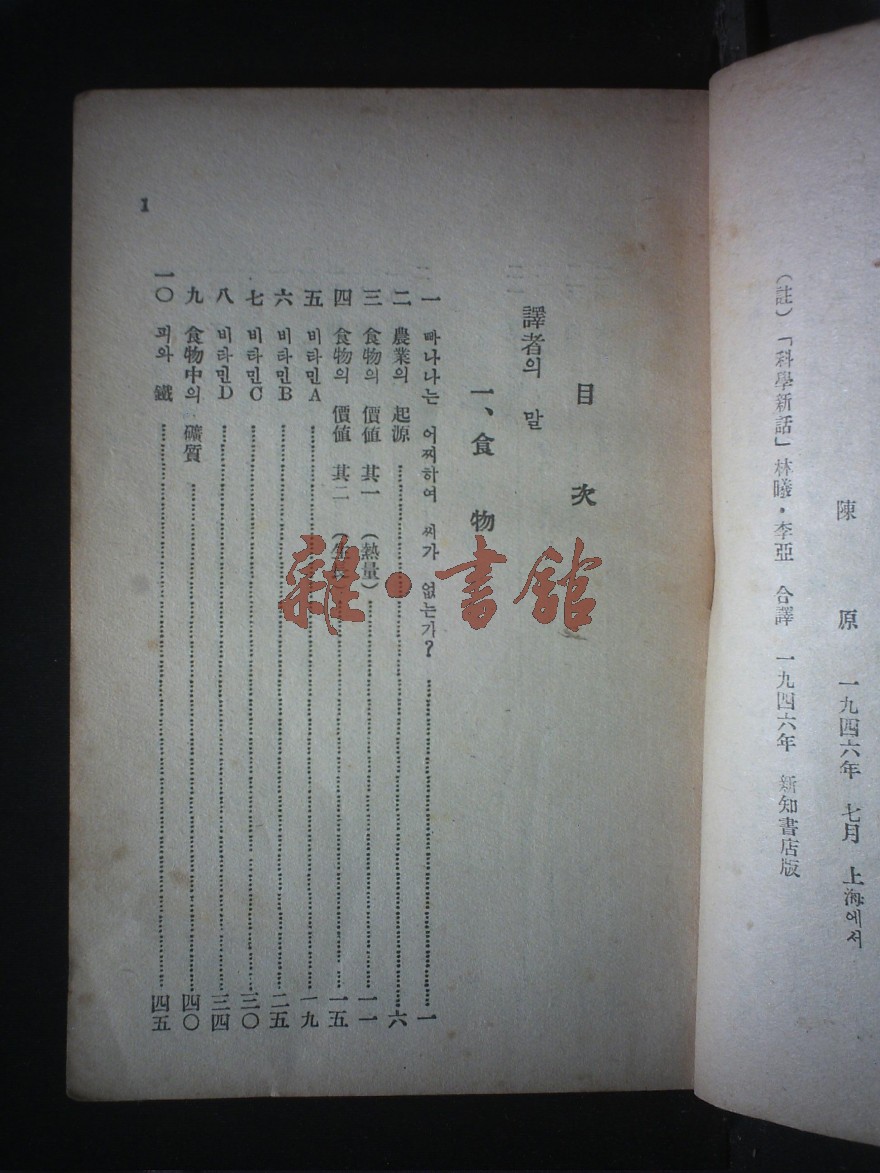 陳 原 一九四六年 七月 上海에서
(註) 「科學新話」 林曦・李亞 合譯 一九四六年 新知書店版
目 次
譯者의 말
一、食 物
一 빠나나는 어찌하여 씨가 없는가? 一
二 農業의 起源 六
三 食物의 價値 其一 (熱量) 一一
四 食物의 價値 其二 一五
五 비타민A 一九
六 비타민B 二五
七 비타민C 三〇
八 비타민D 三四
九 食物中의 礦質 四〇
一〇 피와 鐵 四五
1
雜・書館